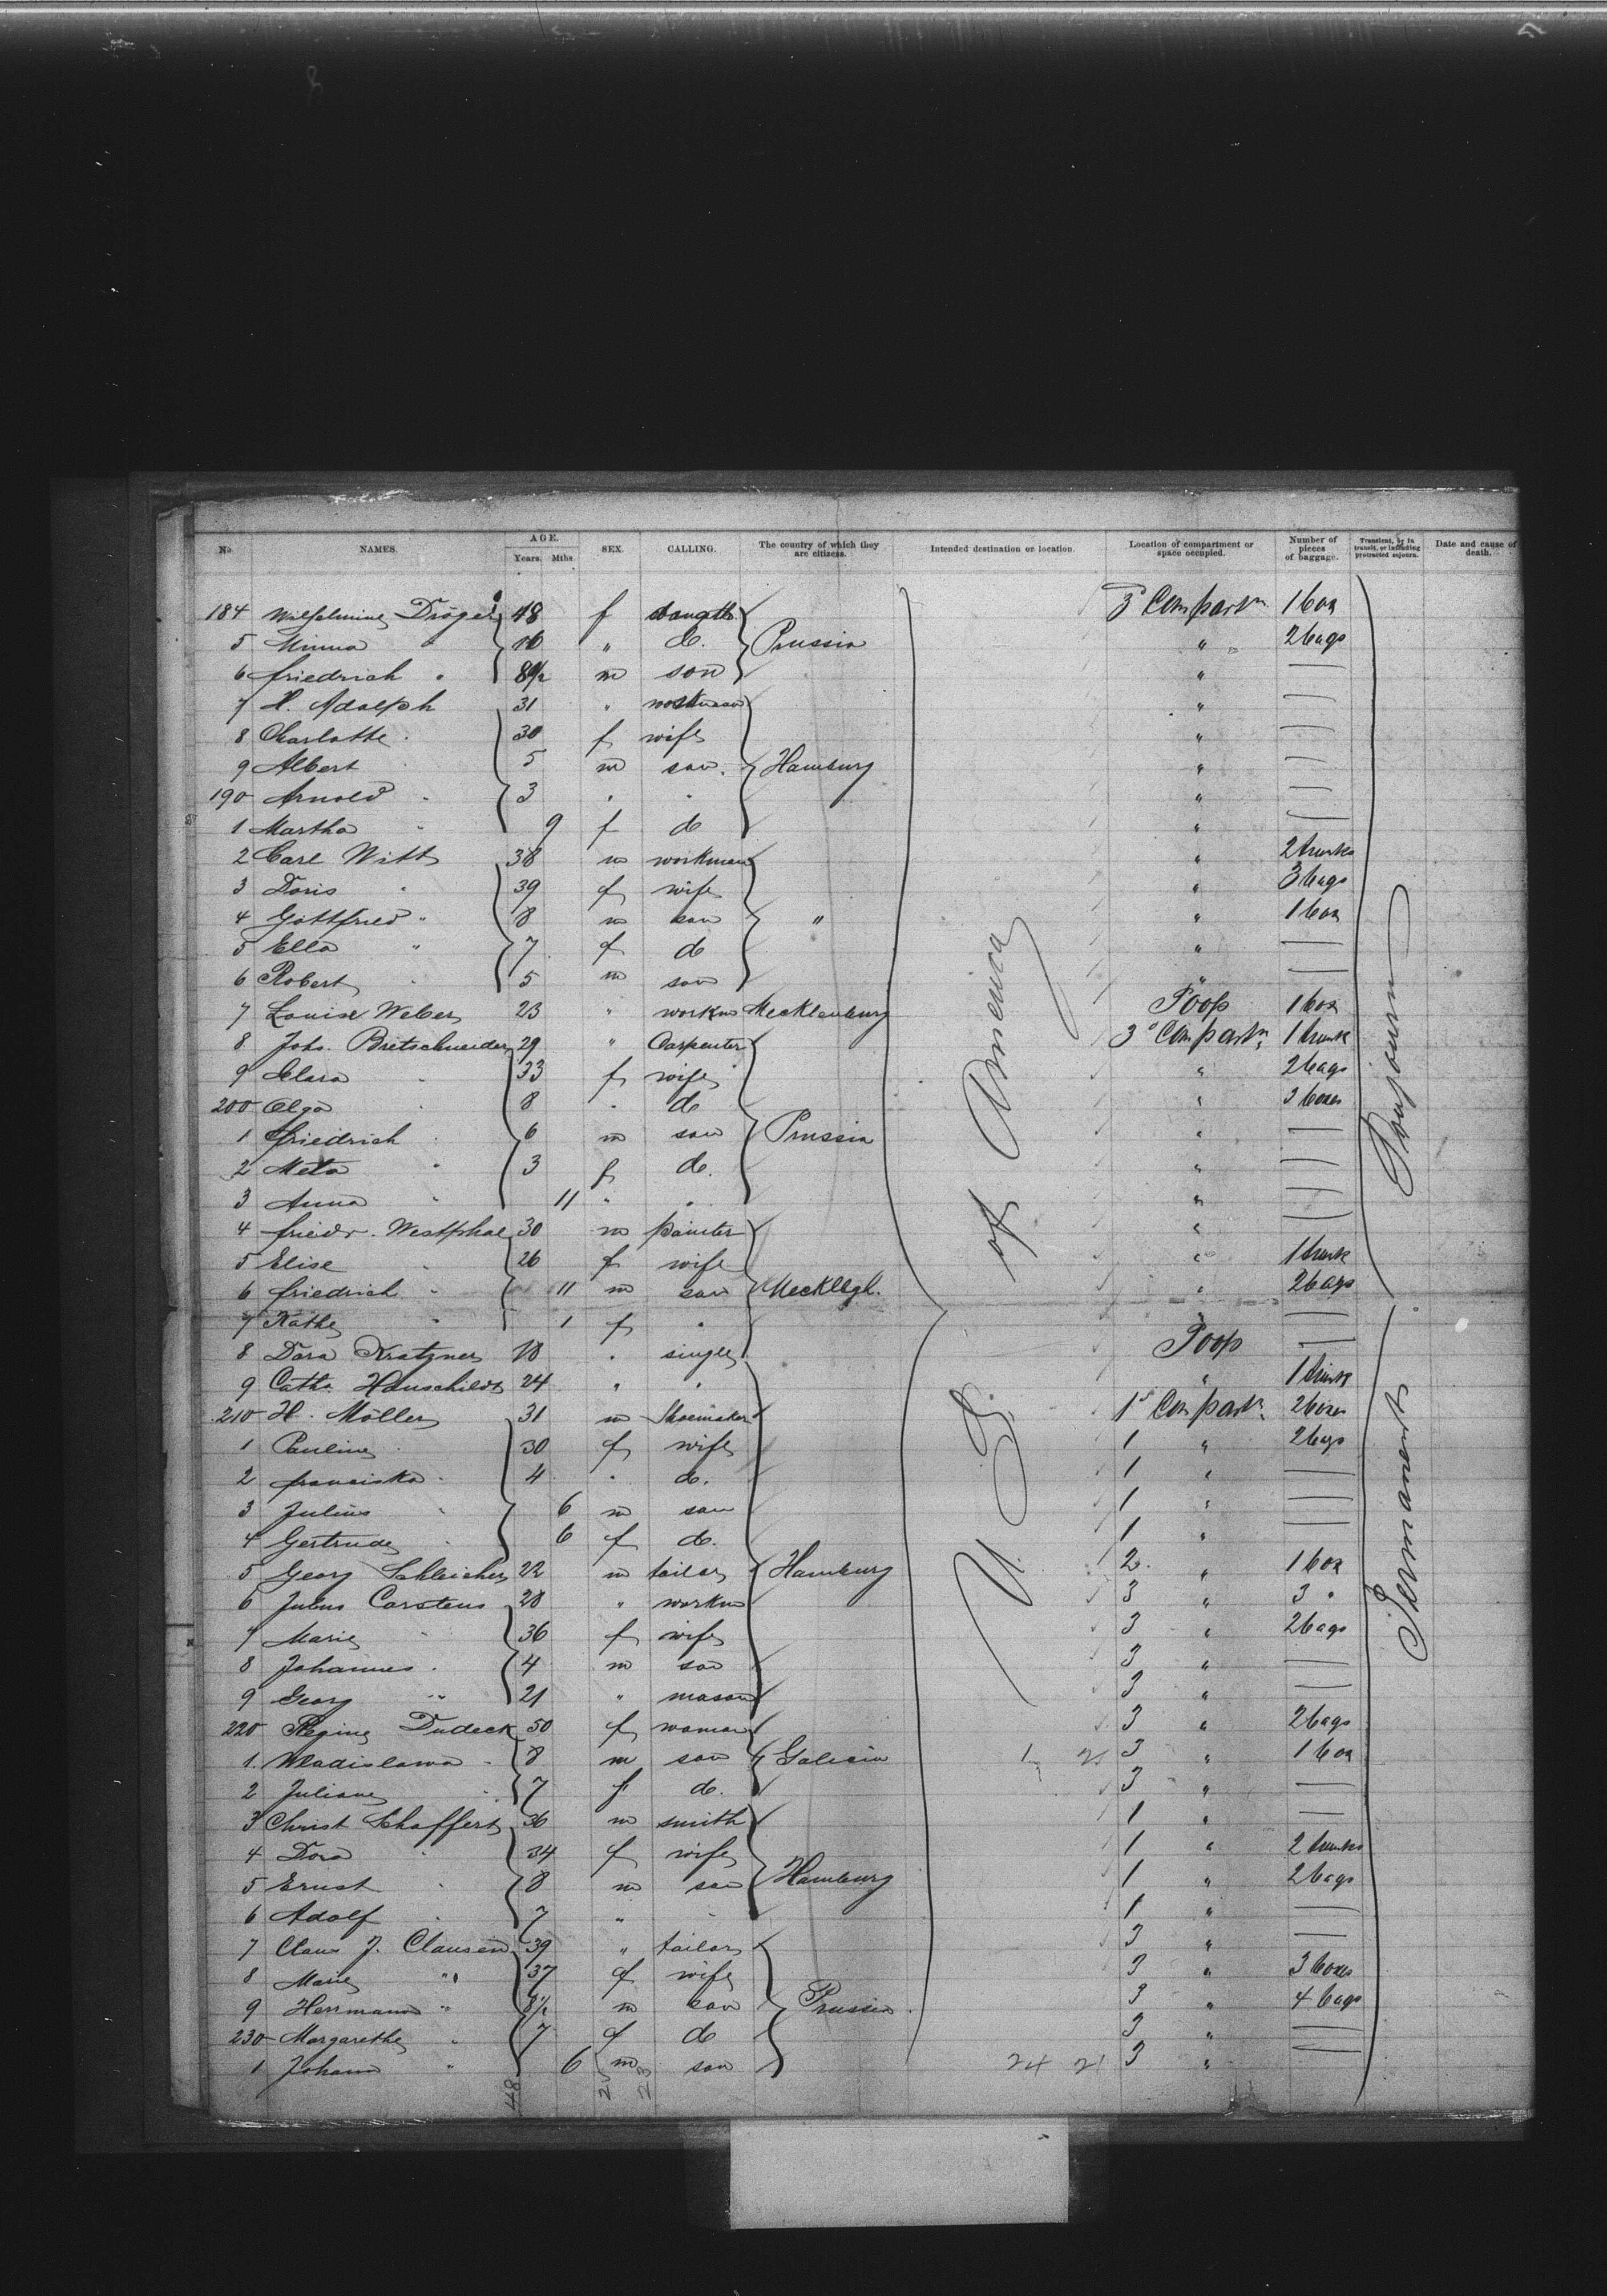 No. NAMES. AGE. Years. Mths. SEX. CALLING. The country of which they are citizens. Intended destination or location. Location of compartment or space occupied. Number of pieces of baggage. Transient, or in transit, or intending protracted sojourn. Date and cause of death.
184 Wilhelmine Dröger 18 f daught 3 Compartm 1 box
5 Minna " 16 " do. Prussia " 2 bags
6 Friedrich " 8 1/2 m son " —
7 H. Adolph 31 " workman " —
8 Charlotte " 30 f wife " —
9 Albert 5 m son. Hamburg " —
190 Arnold " 3 " " " —
1 Martha " 9 f do " —
2 Carl Witt 38 m workman " 2 trunks
3 Doris " 39 f wife " 3 bags
4 Gottfried " 8 m son " " 1 box
5 Ella " 7 f do " —
6 Robert " 5 m son " —
7 Louise Weber 23 " workm Mecklenburg Poop 1 box
8 Johs. Bretschneider 29 " Carpenter 3 Compartm 1 trunk
9 Clara " 33 f wife " 2 bags
200 Olga " 8 " do " 3 boxes
1 Friedrich " 6 m son Prussia " —
2 Meta " 3 f do. " —
3 Anna " 11 " " " —
4 Friedr. Westphal 30 m painter " —
5 Elise " 26 f wife " 1 trunk
6 Friedrich " 11 m son Mecklbgh. " 2 bags
7 Käthe " 1 f " " —
8 Dora Kratzner 18 " single Poop —
9 Cath. Hauschildt 24 " " " 1 trunk
210 H. Möller 31 m Shoemaker 1 Compartm. 2 boxes
1 Pauline " 30 f wife 1 " 2 bags
2 Franciska " 4 " do. 1 " —
3 Julius " 6 m son 1 " —
4 Gertrude " 6 f do. 1 " —
5 Georg Schleicher 22 m tailor Hamburg 2 " 1 box
6 Julius Carstens 28 " workm 3 " 3 "
7 Marie " 36 f wife 3 " 2 bags
8 Johannes " 4 m son 3 " —
9 Georg " 21 " mason 3 " —
220 Regine Dudeck 50 f woman 3 " 2 bags
1 Wladislawa " 8 m son Galicia 3 " 1 box
2 Juliane " 7 f do. 3 " —
3 Christ Schaffert 36 m smith 1 " —
4 Dora " 34 f wife 1 " 2 trunks
5 Ernst " 8 m son Hamburg 1 " 2 bags
6 Adolf " 7 " " 1 " —
7 Claus J. Clausen 39 " tailor 3 " —
8 Marie " 37 f wife 3 " 3 boxes
9 Herrmann " 8 1/2 m son Prussia 3 " 4 bags
230 Margarethe " 7 f do 3 " —
1 Johann " 6 m son 24 21 3 " —
U. S. of America
Sojourn
Permanent
48 25 23